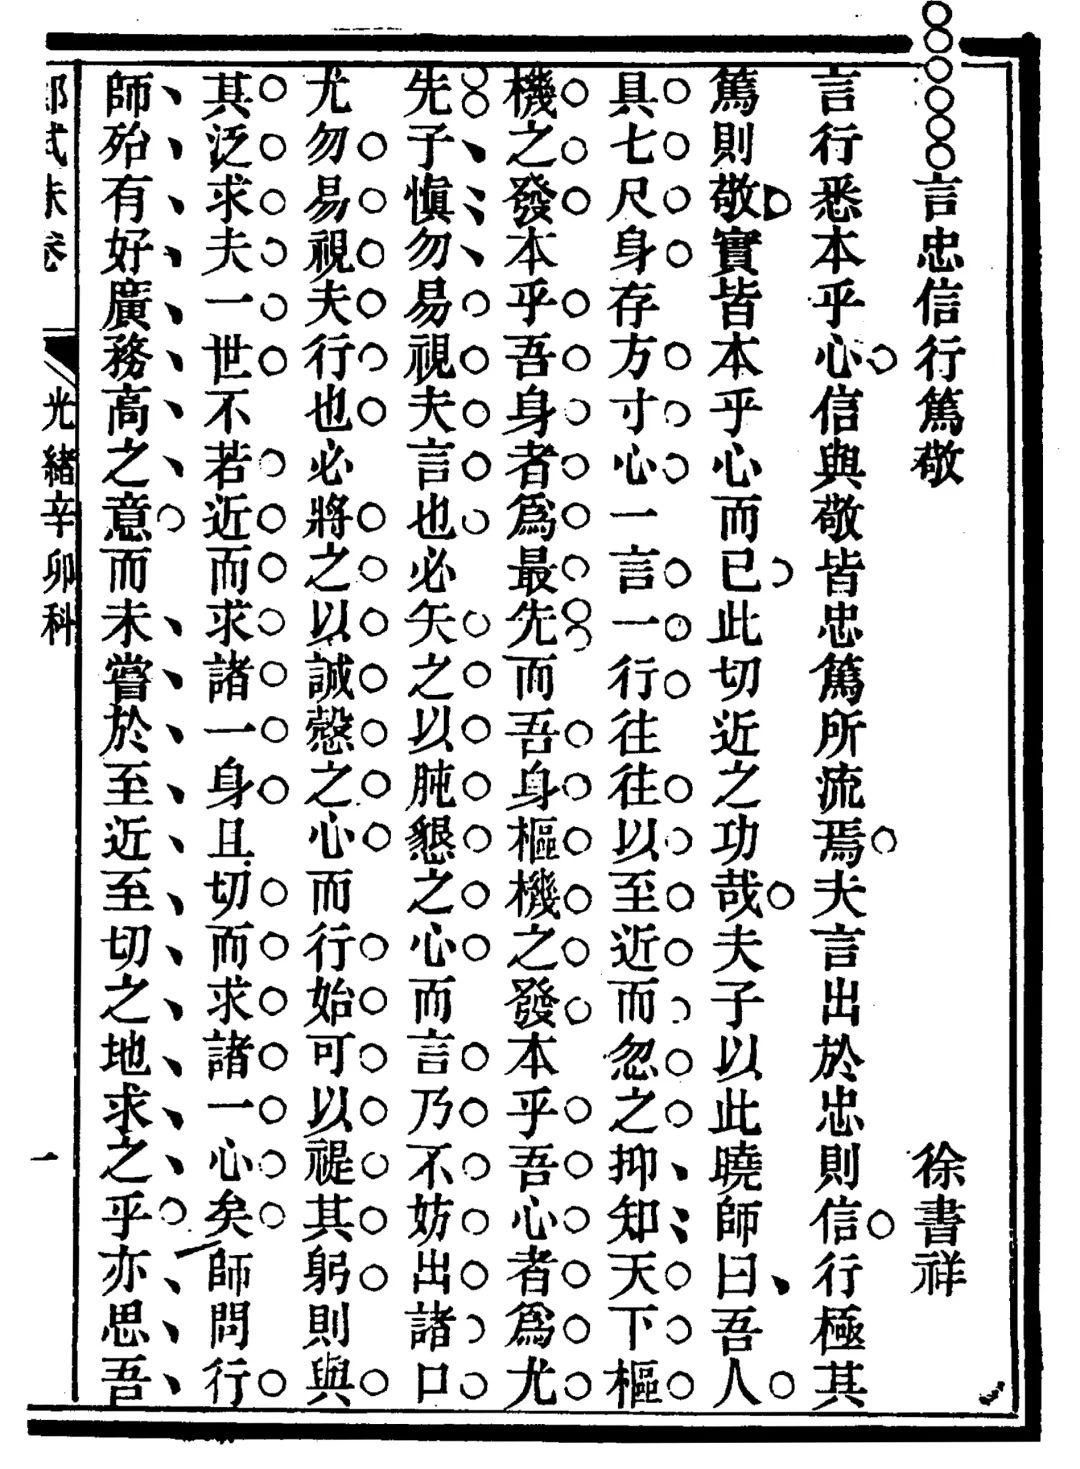 言忠信行篤敬
徐書祥
言行悉本乎心信與敬皆忠篤所流焉夫言出於忠則信行極其
篤則敬實皆本乎心而已此切近之功哉夫子以此曉師曰吾人
具七尺身存方寸心一言一行往往以至近而忽之抑知天下樞
機之發本乎吾身者爲最先而吾身樞機之發本乎吾心者爲尤
先子愼勿易視夫言也必矢之以肫懇之心而言乃不妨出諸口
尤勿易視夫行也必將之以誠慤之心而行始可以禔其躬則與
其泛求夫一世不若近而求諸一身且切而求諸一心矣師問行
師殆有好廣務高之意而未嘗於至近至切之地求之乎亦思吾
鄉試硃卷
光緒辛卯科
一